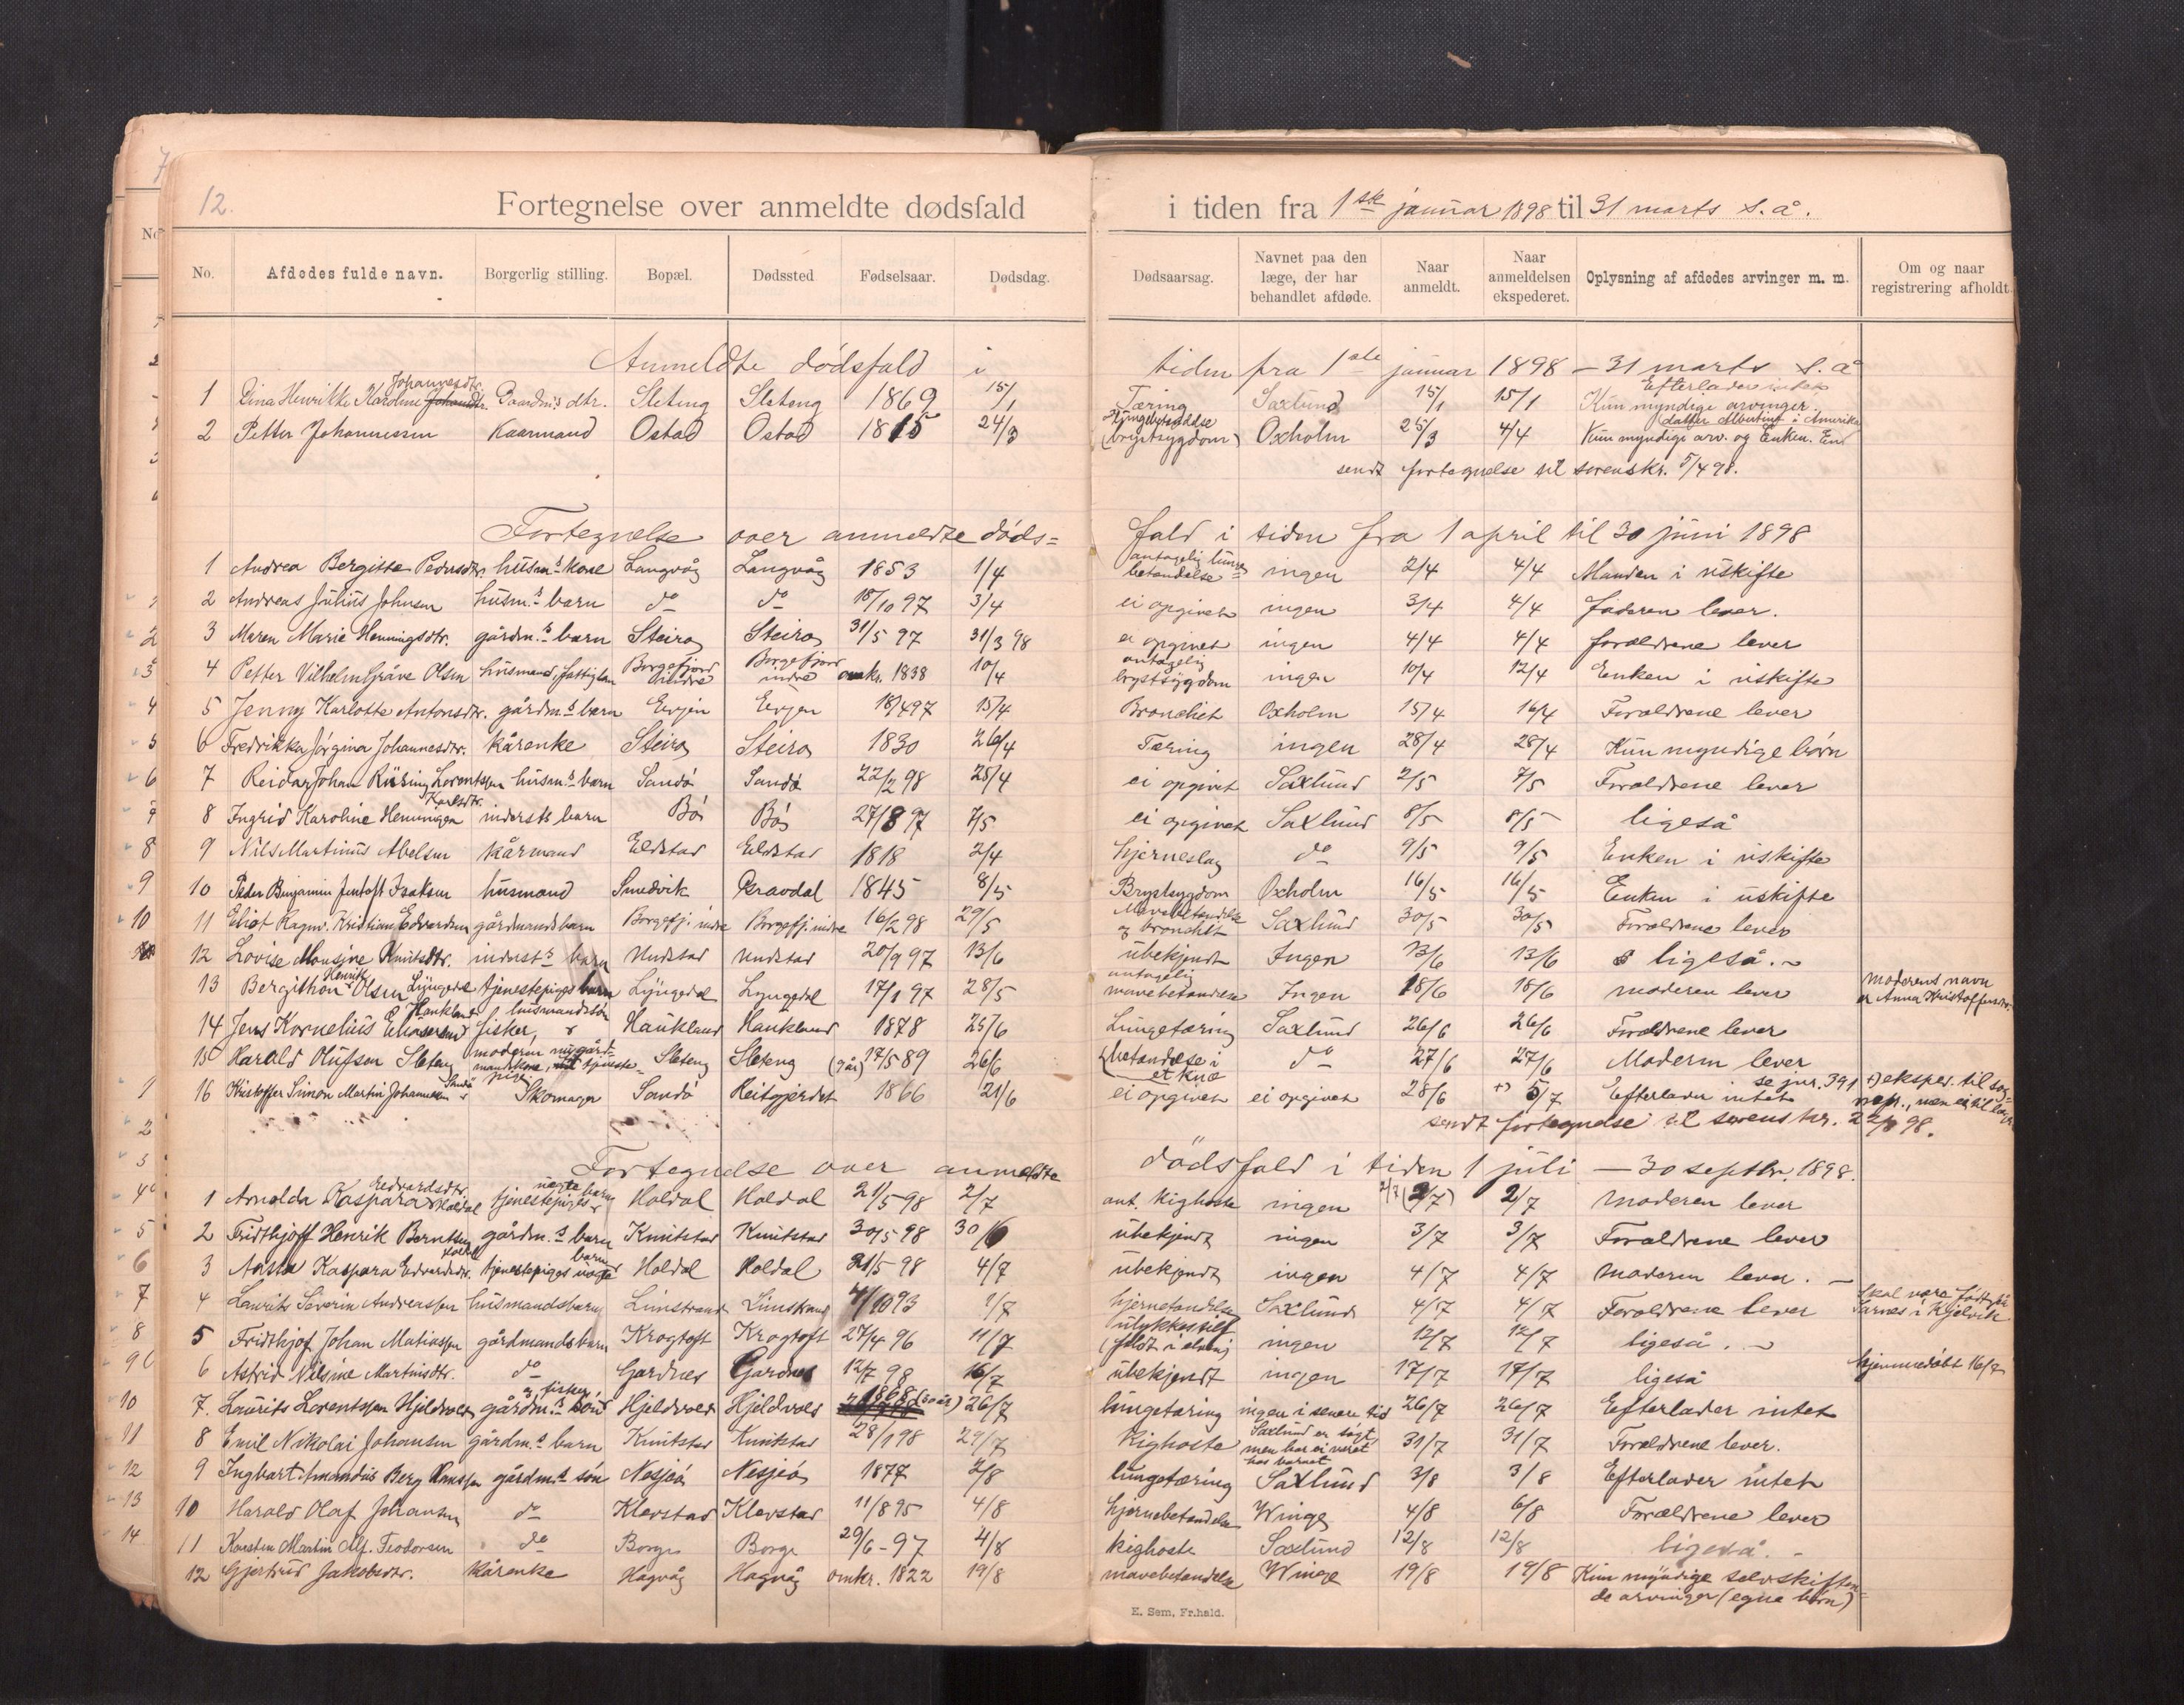 12.
Fortegnelse over anmeldte dødsfald i tiden fra 1ste januar 1898 til 31 marts s. å.
No. Afdødes fulde navn. Borgerlig stilling. Bopæl. Dødssted Fødselsaar. Dødsdag. Dødsaarsag. Navnet paa den læge, der har behandlet afdøde. Naar anmeldt. Naar anmeldelsen ekspederet. Oplysning af afdødes arvinger m. m. Om og naar registrering afholdt.
Anmeldte dødsfald i tiden fra 1ste januar 1898 – 31 marts s. å
1 Dina Henrikke Karoline Johannesdtr. Gaardm.s dtr. Sleteng Sleteng 1869 15/1 Tæring Saxlund 15/1 15/1 Efterlader intet Kun myndige arvinger
2 Petter Johannessen Kaarmand Ostad Ostad 1815 24/3 Lungebetændelse (brystsygdom) Oxholm 25/3 4/4 Kun myndige arv. og Enken. En datter Albertine i Amerika
sendt fortegnelse til sorenskr. 5/4 98.
Fortegnelse over anmeldte døds= fald i tiden fra 1 april til 30 juni 1898
1 Andrea Bergitte Pedersdtr. husm.s kone Langvåg Langvåg 1853 1/4 antagelig lunge= betændelse ingen 2/4 4/4 Manden i uskifte
2 Andreas Julius Johnsen husm.s barn do do 18/10 97 3/4 ei opgivet ingen 3/4 4/4 faderen lever.
3 Maren Marie Henningsdtr. gårdm.s barn Steiro Steiro 31/5 97 31/3 98 ei opgivet ingen 4/4 4/4 forældrene lever
4 Petter Vilhelm Grave Olsen husmand, fattiglem Borgefjord indre Borgefjord indre omkr. 1838 10/4 antagelig brystsygdom ingen 10/4 12/4 Enken i uskifte
5 Jenny Karlotte Antonsdtr. gårdm.s barn Evjen Evjen 18/4 97 15/4 Bronchit Oxholm 15/4 16/4 Forældrene lever
6 Fredrikka Jørgina Johannesdtr. kårenke Steiro Steiro 1830 26/4 Tæring ingen 28/4 28/4 Kun myndige børn
7 Reidar Johan Rusing Lorentsen husm.s barn Sandø Sandø 22/2 98 28/4 ei opgivet Saxlund 2/5 7/5 Forældrene lever
8 Ingrid Karoline Henningsen Karlsdtr. indersts barn Bø Bø 27/8 97 7/5 ei opgivet Saxlund 8/5 8/5 ligeså
9 Nils Martinus Abelsen kårmand Eldstad Eldstad 1818 2/4 hjerneslag do 9/5 9/5 Enken i uskifte
10 Peder Benjamin Jentoft Isaksen husmand Smedvik Pravdal 1845 8/5 Brystsygdom Oxholm 16/5 16/5 Enken i uskifte
11 Eliot Ragnv. Kristian Edvardsen gårdmands barn Borgefj. indre Borgefj. indre 16/2 98 29/5 Mavebetændelse og bronchit Saxlund 30/5 30/5 Forældrene lever
12 Lovise Monsine Knutsdtr. inderst.s barn Undstad Undstad 20/9 97 13/6 ubekjendt Ingen 13/6 13/6 ligeså.
13 Bergithon Henrik Olsen Lyngedal tjenestepiges barn Lyngedal Lyngedal 17/1 97 28/5 antagelig mavebetændelse Ingen 18/6 18/6 moderen lever moderens navn er Anna Kristoffersdtr.
14 Jens Kornelius Eliassen Haukland fisker, husmandssøn Haukland Haukland 1878 25/6 Lungetæring Saxlund 26/6 26/6 Forældrene lever
15 Harald Olufsen Sleteng moderen nu gård= mandskone, tjeneste= pige Sleteng Sleteng (9 år) 17/5 89 26/6 (betændelse i et knæ do 27/6 27/6 Moderen lever
16 Kristoffer Simon Martin Johannesen Sandø Skomager Sandø Reitgjerdet 1866 21/6 ei opgivet ei opgivet 28/6 +) 5/7 Efterlader intet se jnr. 391 +) eksper. til
sendt fortegnelse til sorenskr. 2 98.
Fortegnelse over anmeldte dødsfald i tiden 1 juli – 30 septbr. 1898.
1 Arnolda Kaspara Edvardsdtr. Holdal tjenestepiges uægte barn Holdal Holdal 21/5 98 2/7 ant. kighoste ingen 2/7 2/7 moderen lever
2 Fridthjoff Henrik Berntsen gårdm.s barn Knutstad Knutstad 30/5 98 30/6 ubekjendt ingen 3/7 3/7 Forældrene lever
3 Aasta Kaspara Edvardsdtr. Holdal tjenestepiges uægte barn Holdal Holdal 21/5 98 4/7 ubekjendt ingen 4/7 4/7 moderen lever. –
4 Laurits Severin Andreassen husmandsbarn Limstrand Limstrand 4/10 93 1/7 hjernetændelse Saxlund 4/7 4/7 Forældrene lever Skal være født på Sarnes i Kjelvik
5 Fridthjof Johan Matiassen gårdmandsbarn Krogtoft Krogtoft 27/4 96 11/7 ulykkestilf. (faldt i elven) ingen 12/7 12/7 ligeså.
6 Astrid Nilsine Martinsdtr. do Gardnes Gardnes 12/7 98 16/7 ubekjendt ingen 17/7 17/7 ligeså hjemmedøbt 16/7
7. Laurits Lorentssen Hjeldvold gårdm.s søn og fisker Hjeldvold Hjeldvold 1868 (30 år) 26/7 lungetæring ingen i senere tid 26/7 26/7 Efterlader intet
8 Emil Nikolai Johansen gårdm.s barn Knutstad Knutstad 28/1 98 29/7 Kighoste Saxlund er søgt, men har ei været hos barnet 31/7 31/7 Forældrene lever.
9 Ingbart Amandus Berg Hanssen gårdm.s søn Nesjeø Nesjeø 1877 2/8 lungetæring Saxlund 3/8 3/8 Efterlader intet
10 Harald Olaf Johansen do Klevstad Klevstad 11/8 95 4/8 hjernebetændelse Winge 4/8 6/8 Forældrene lever
11 Karsten Martin Alf. Teodorsen do Borge Borge 29/6 – 97 4/8 kighoste Saxlund 12/8 12/8 ligeså. –
12 Gjertrud Jakobsdtr. kårenke Hagvåg Hagvåg omkr. 1822 19/8 mavebetændelse Winge 19/8 19/8 Kun myndige selvskiften= de arvinger (egne børn)
E. Sem, Fr.hald.